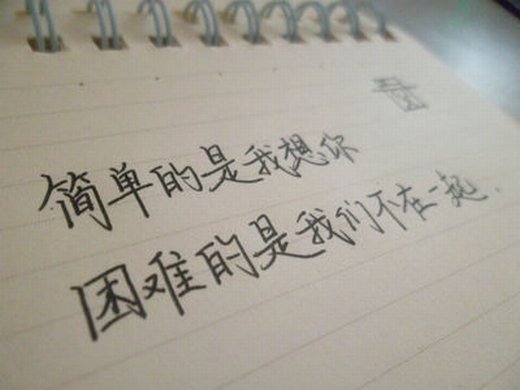 简单的是我想你
困难的是我们不在一起.